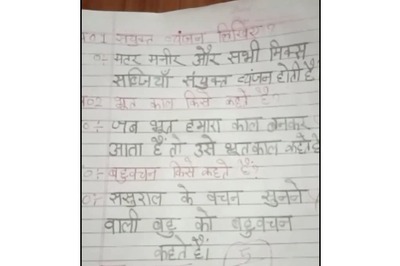 प्र01 संयुक्त व्यंजन लिखिए?
उ÷ मटर पनीर और सभी मिक्स
सब्जियाँ संयुक्त व्यंजन होती हैं
प्र02 भूत काल किसे कहते है?
उ÷ जब भूत हमारा काल बनकर
आता है तो उसे भूतकाल कहते है
प्र÷ बहुवचन किसे कहते है?
उ÷ ससुराल के वचन सुनने
वाली बहु को बहुवचन
कहते हैं।